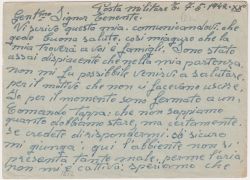 Posta militare li 7-6-1942-XX
Gent.mo Signor Tenente.
Vi scrivo questa mia, comunicandovi che
godo buona salute, così mi auguro che la
mia troverà a voi e famiglia. Sono stato
assai dispiacente che nella mia partenza
non mi fu possibile venirvi a salutare
per il motivo che non ci facevano uscire.
Io per il momento sono fermato a un
Comando Tappa: che non sappiamo
quanto dobbiamo stare, ma certamente
se credete di rispondermi, che sicuro
mi giunga; qui l'abbiente non si
presenta tanto male, perme l'aria
non mi è cattiva, speriamo che